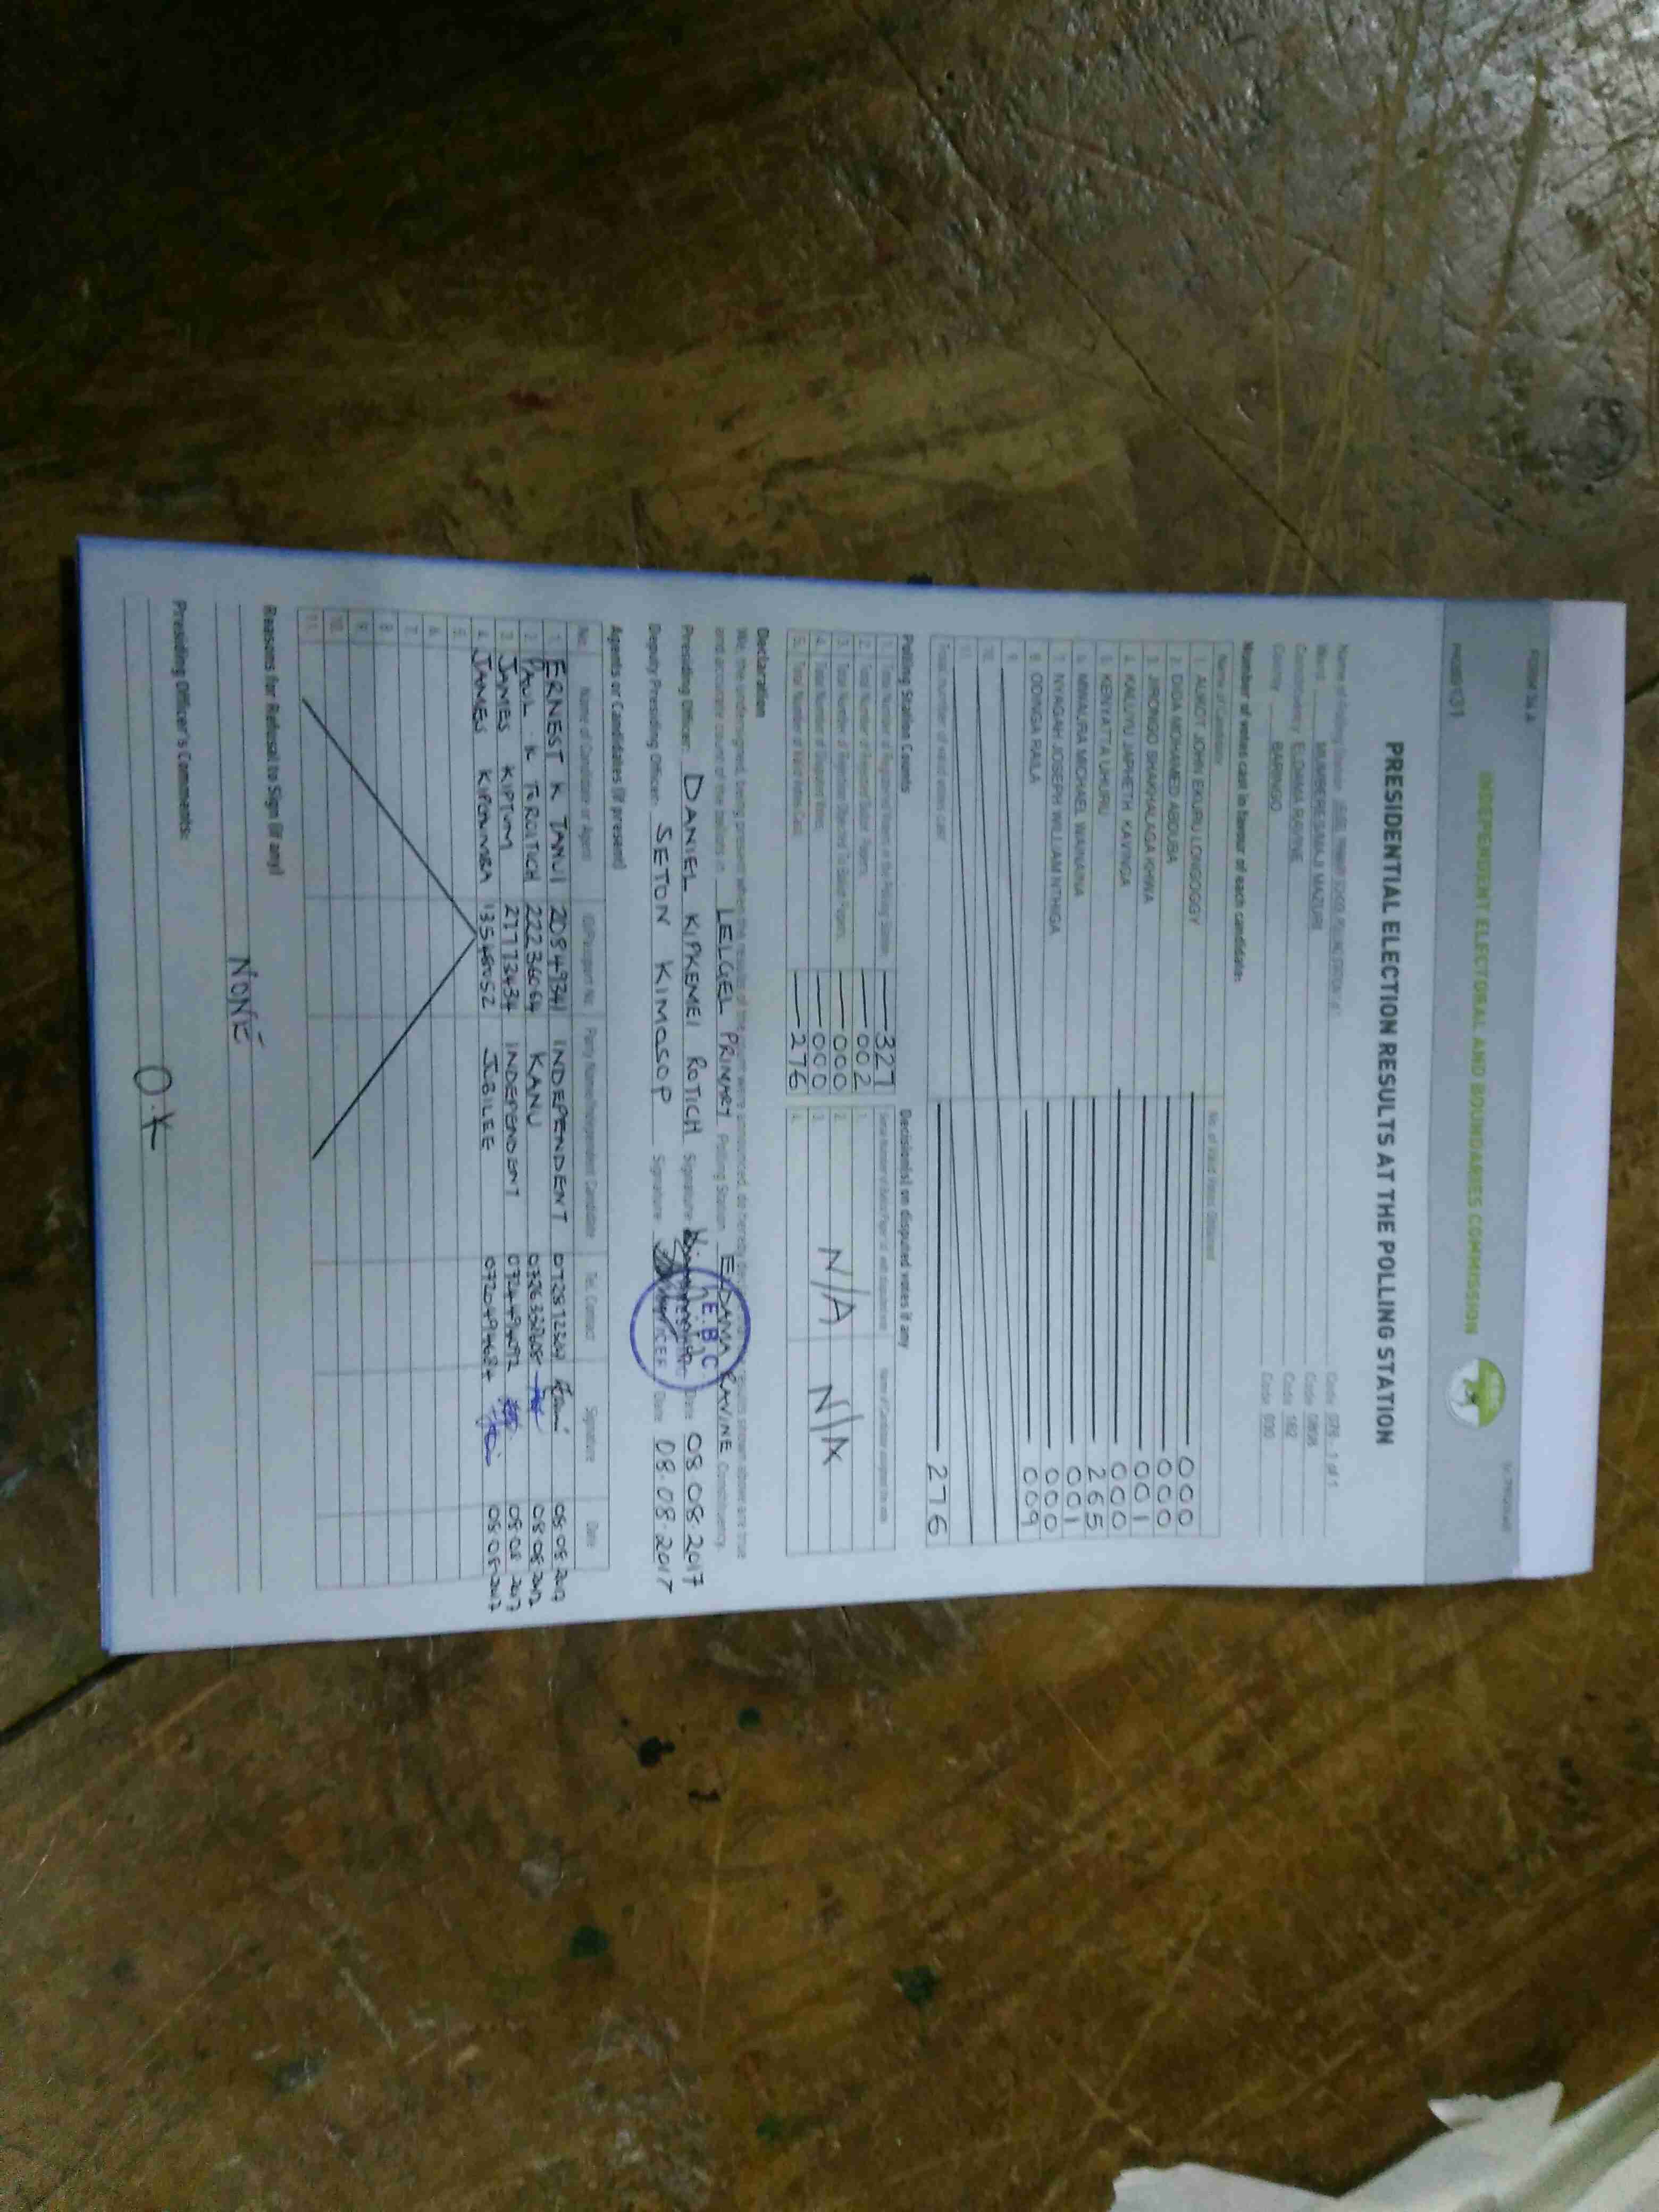 FORM 34 A
INDEPENDENT ELECTORAL AND BOUNDARIES COMMISSION
PRESIDENTIAL ELECTION RESULTS AT THE POLLING STATION
Name of Polling Station
Ward MUMBERES/MAJI MAZURI Code
Constituency ELDAMA RAVINE Code 162
County BARINGO Code 030
Number of votes cast in favour of each candidate:
Name of Candidate No. of Valid Votes Obtained
1. AUKOT JOHN EKURU LONGOGGY 000
2. DIDA MOHAMED ABDUBA 000
3. JIRONGO SHAKHALAGA KHWA 001
4. KALUYU JAPHETH KAVINGA 000
5. KENYATTA UHURU 265
6. MWAURA MICHAEL WAINAINA 001
7. NYAGAH JOSEPH WILLIAM NTHIGA 000
8. ODINGA RAILA 009
9.
10.
11.
Total number of valid votes cast 276
Polling Station Counts Decision(s) on disputed votes if any
1. Total Number of Registered Voters in the Polling Station 327
2. Total Number of Rejected Ballot Papers 002 1.
3. Total Number of Rejection Objected To Ballot Papers 000 2. N/A N/A
4. Total Number of Disputed Votes 000 3.
5. Total Number of Valid Votes Cast 276 4.
Declaration
We, the undersigned, being present when the results of the count were announced, do hereby declare that the results shown above are true
and accurate count of the ballots in LELGEL PRIMARY Polling Station ELDAMA RAVINE Constituency.
Presiding Officer: DANIEL KIPKEMEI ROTICH Signature: Date 08.08.2017
Deputy Presiding Officer: SETON KIMOSOP Signature: Date 08.08.2017
Agents or Candidates (if present)
No. Name of Candidate or Agent ID/Passport No. Party Name/Independent Candidate Tel. Contact Signature Date
1. ERNEST K TANUI 20849341 INDEPENDENT 08.08.2017
2. PAUL K TOROTICH 22236064 KANU 08.08.2017
3. JAMES KIPTUM 27773434 INDEPENDENT 08.08.2017
4. JAMES JUBILEE 0720494684 08.08.2017
5.
6.
7.
8.
9.
10.
11.
Reasons for Refusal to Sign (if any)
NONE
Presiding Officer's Comments:
O.K